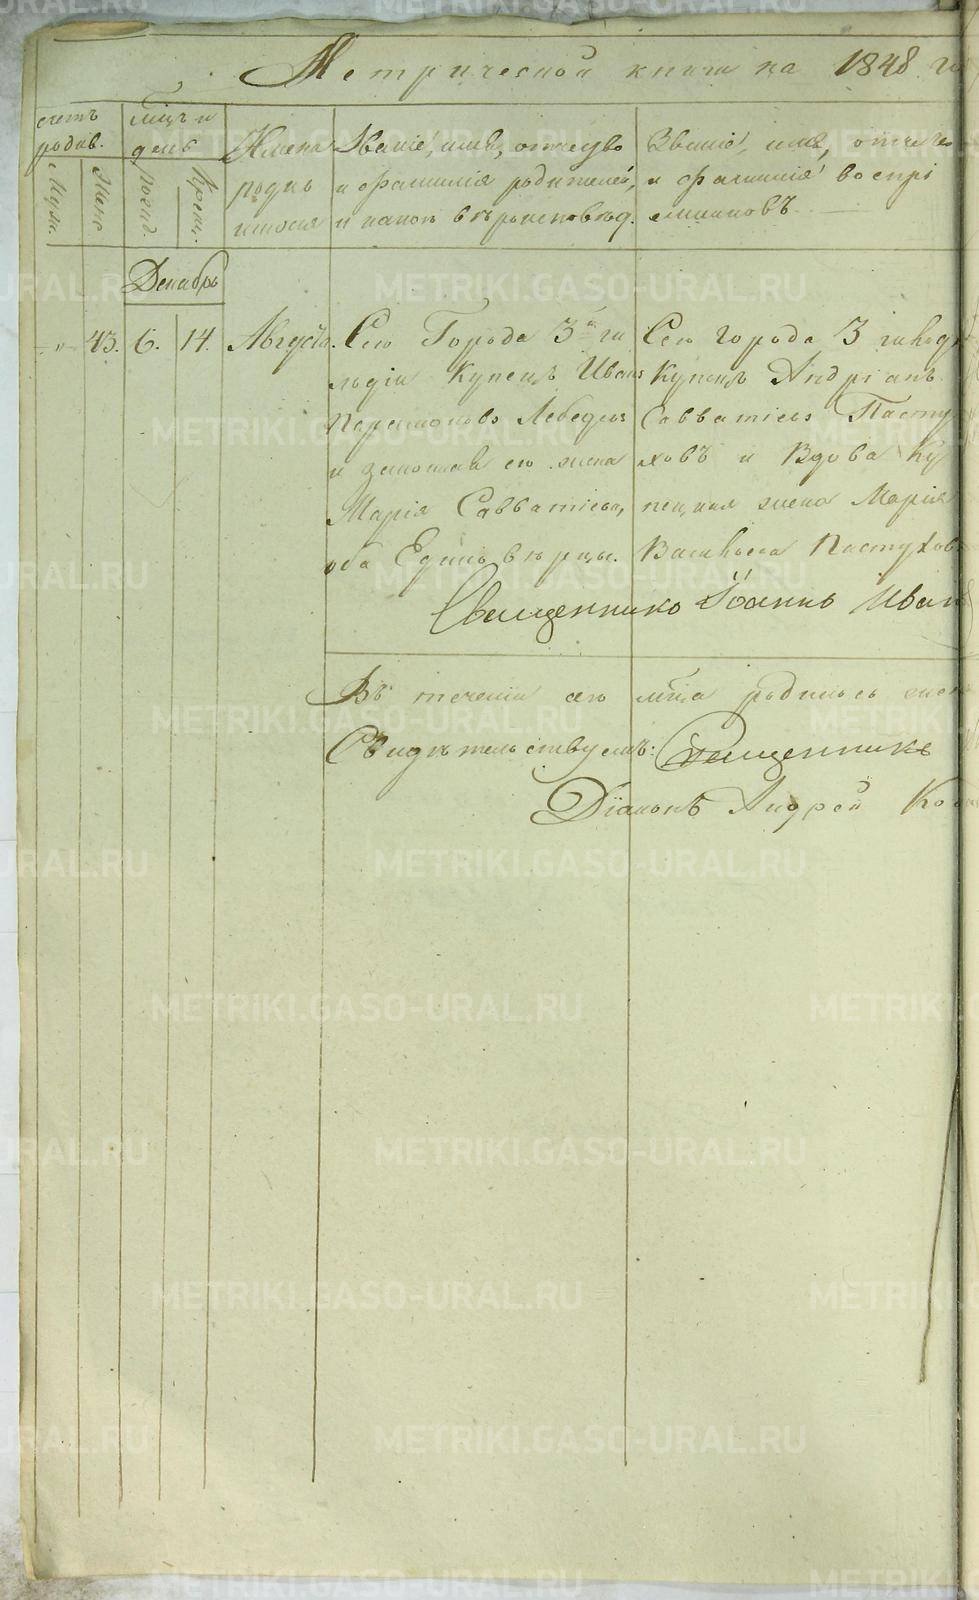 Метрической книги на 1848 го
счетъ родив.
мцъ и день
Имена родив
шихся
Званіе, имя, отчество
и фамилія родителей,
и какого вѣроисповѣд.
Званіе, имя, отчест
и фамилія воспрі
емниковъ.
Муж.
Женс
рожд.
Крещ.
Декабрь
" 43. 6. 14. Августа.
Сего Города 3й ги
льдіи Купецъ Иванъ
Парамоновъ Лебедевъ
и законная его жена
Марія Савватіева,
оба Единовѣрцы.
Сего города 3 гильд
Купецъ Андріанъ
Савватіевъ Пасту
ховъ и Вдова Ку
печ. жена Марія
Васильева Пастухов
Священникъ Іоаннъ Иван
Въ теченіи сего мца родилось жен
Свидѣтельствуемъ: Священникъ
Діаконъ Андрей Ко
METRIKI.GASO-URAL.RU